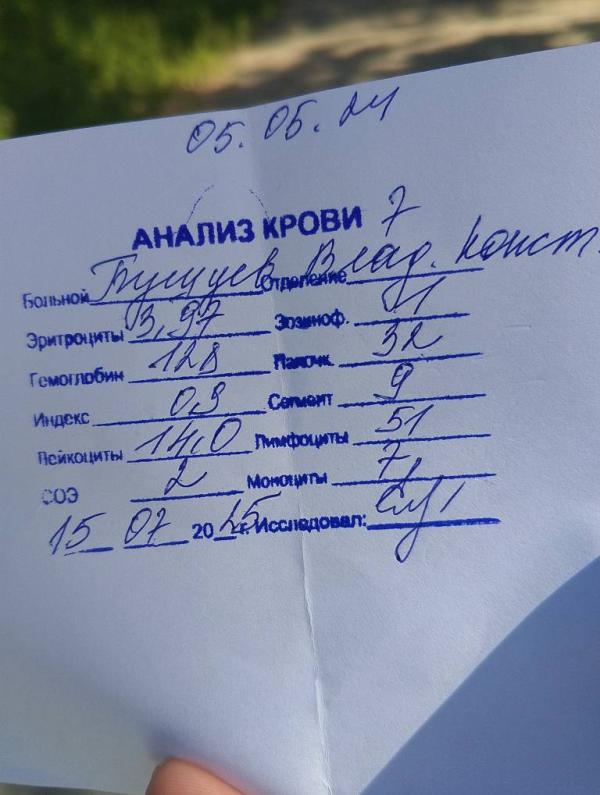 05.05.24
АНАЛИЗ КРОВИ 7
Больной Отделение Влад. Конст.
Эритроциты 3,97 Эозиноф. 1
Гемоглобин 128 Палочк. 32
Индекс 0,9 Сегмент 9
Лейкоциты 14,0 Лимфоциты 51
СОЭ 2 Моноциты 7
15 07 2025 г. Исследовал: